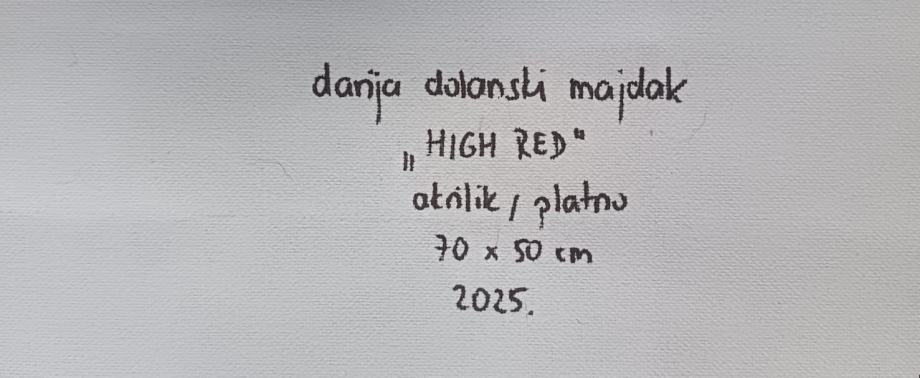 darija dolanski majdak
„HIGH RED“
akrilik / platno
70 x 50 cm
2025.